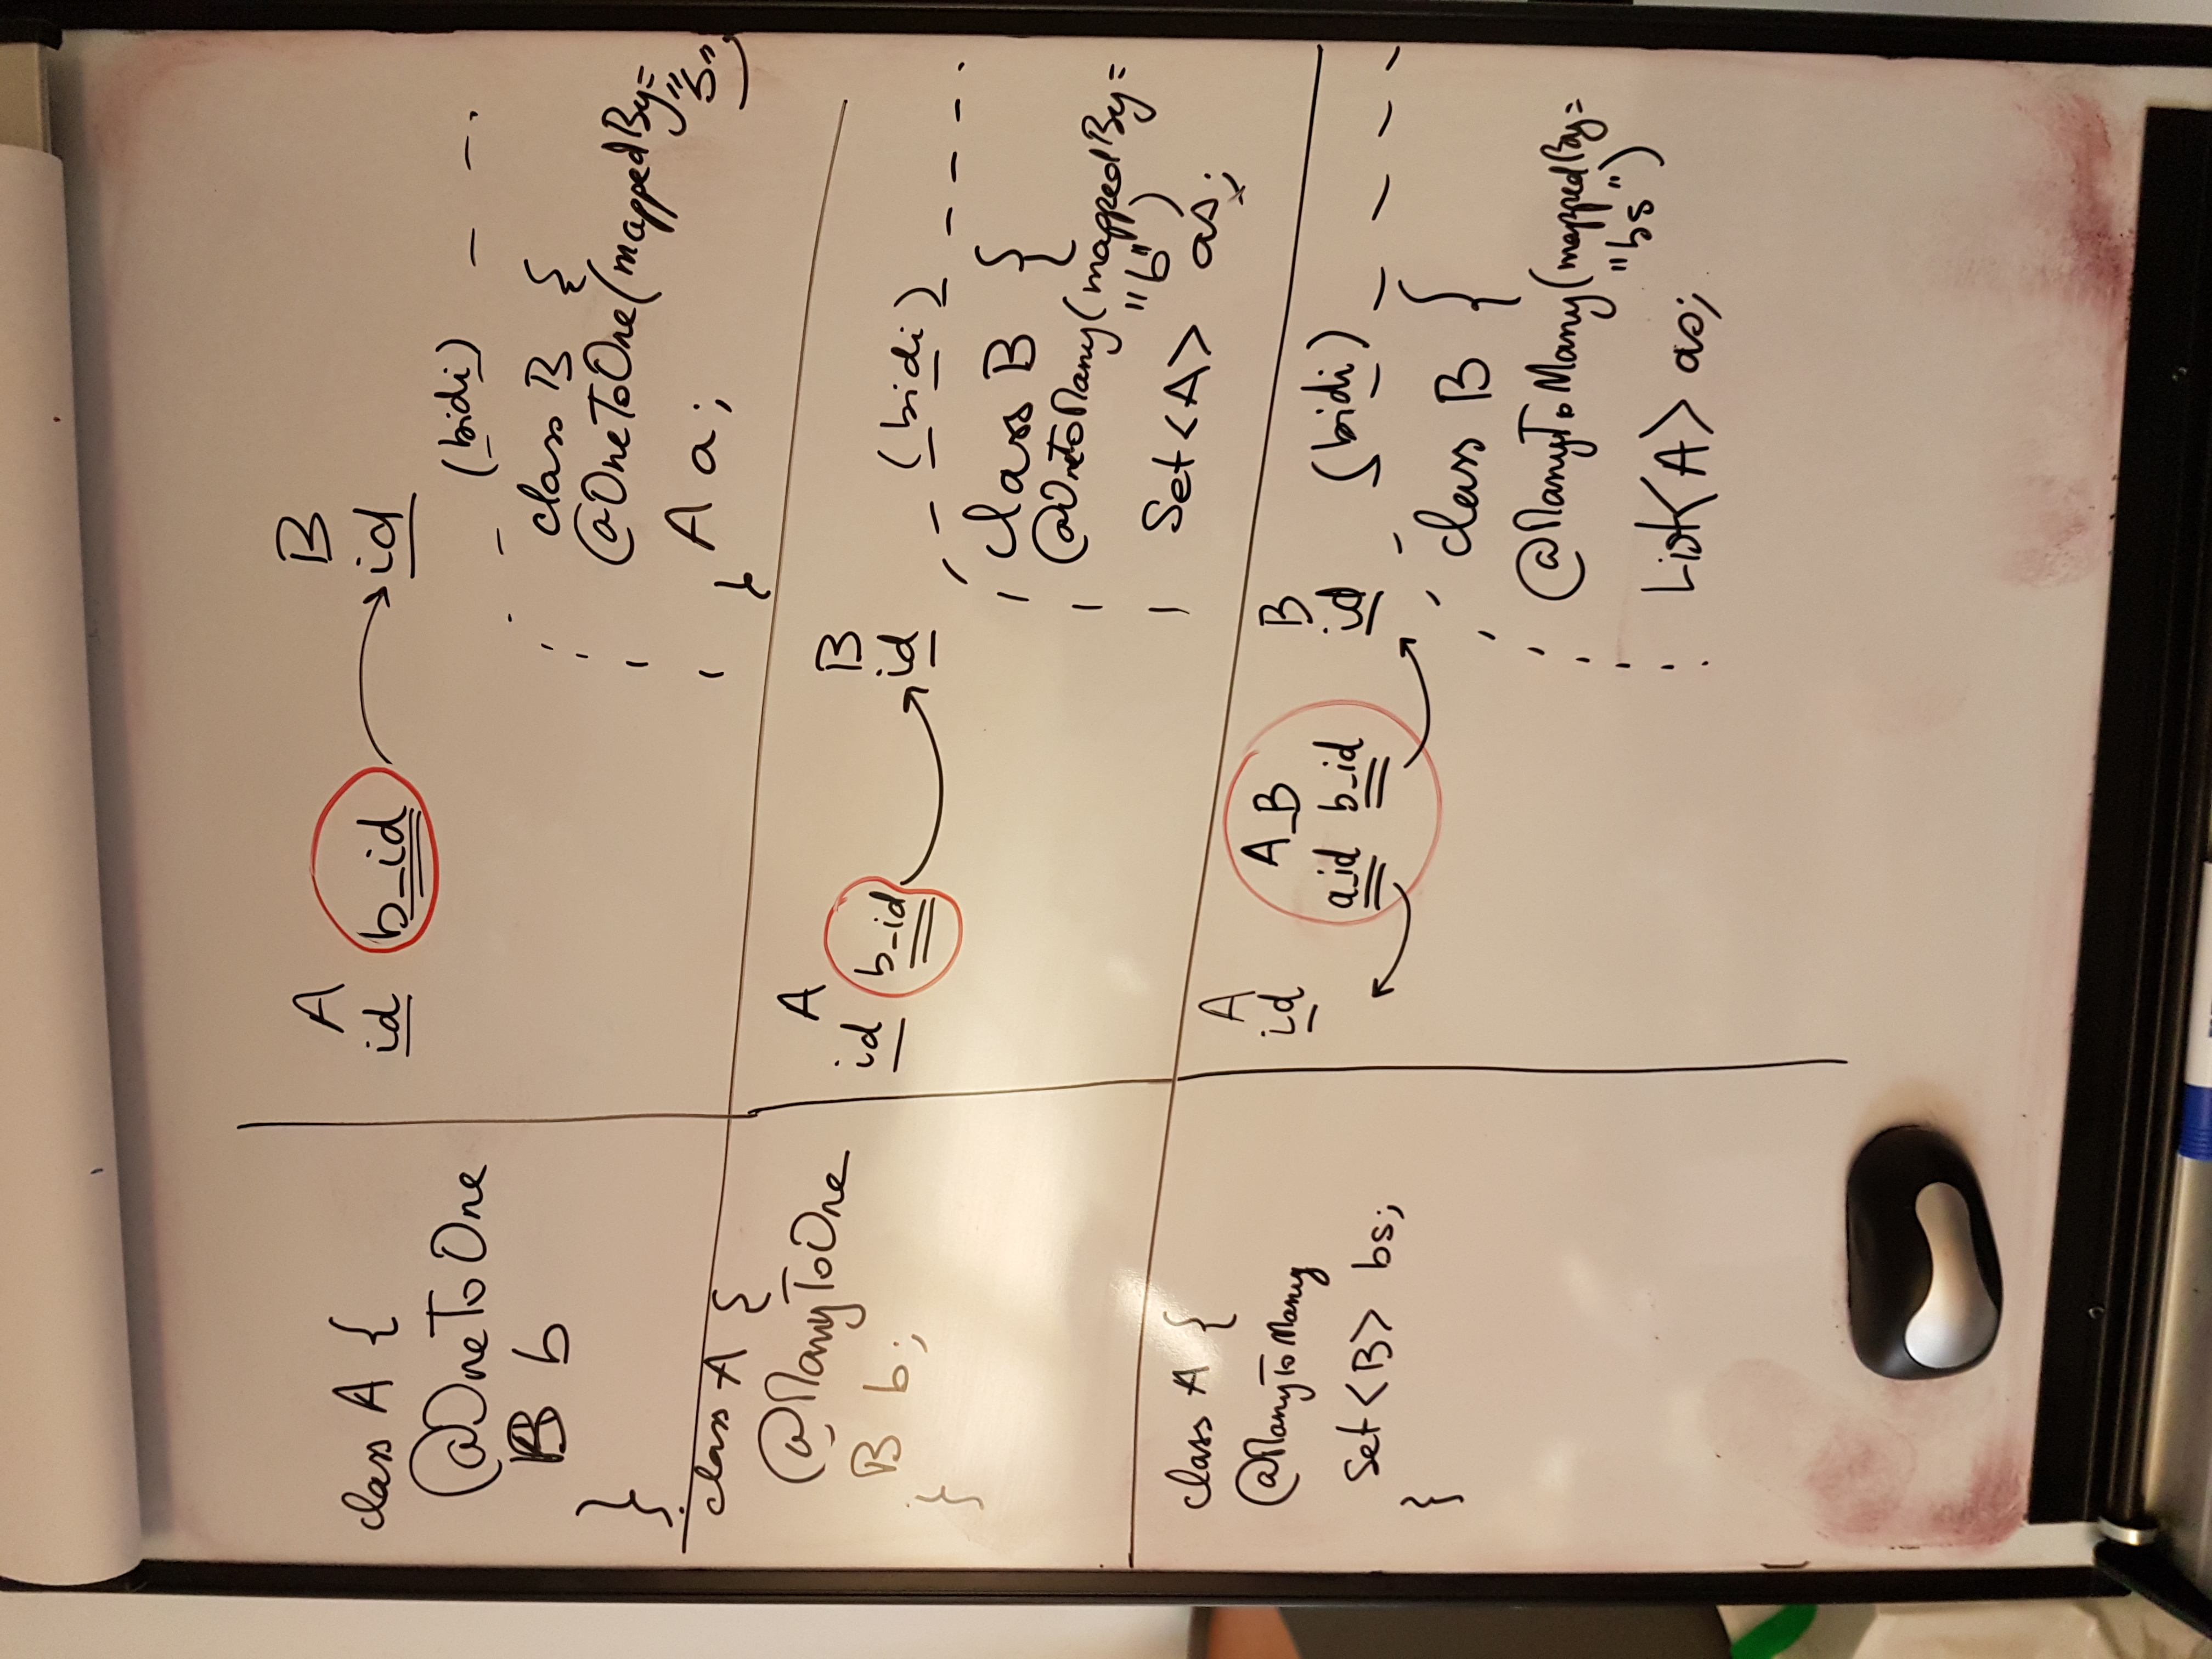 class A {
@OneToOne
B b
}
A
id b_id
B
id
(bidi)
class B {
@OneToOne(mappedBy=
"b")
A a;
}
class A {
@ManyToOne
B b;
}
A
id b_id
B
id
(bidi)
class B {
@OneToMany(mappedBy=
"b")
Set<A> as;
class A {
@ManyToMany
Set<B> bs;
}
A
id
A_B
a_id b_id
B
id
(bidi)
class B {
@ManyToMany(mappedBy=
"bs")
List<A> as;